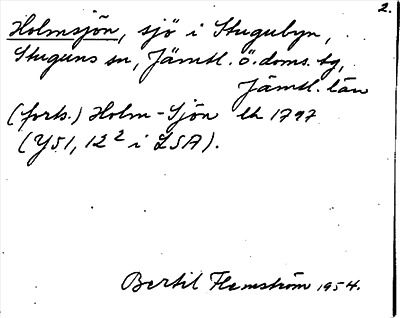 2.
Holmsjön, sjö i Stugubyn,
Stuguns sn, Jämtl. ö. doms. tg,
Jämtl. län
(forts.) Holm-Sjön lk 1797
(Y51, 12² i LSA).
Bertil Flemström 1954.